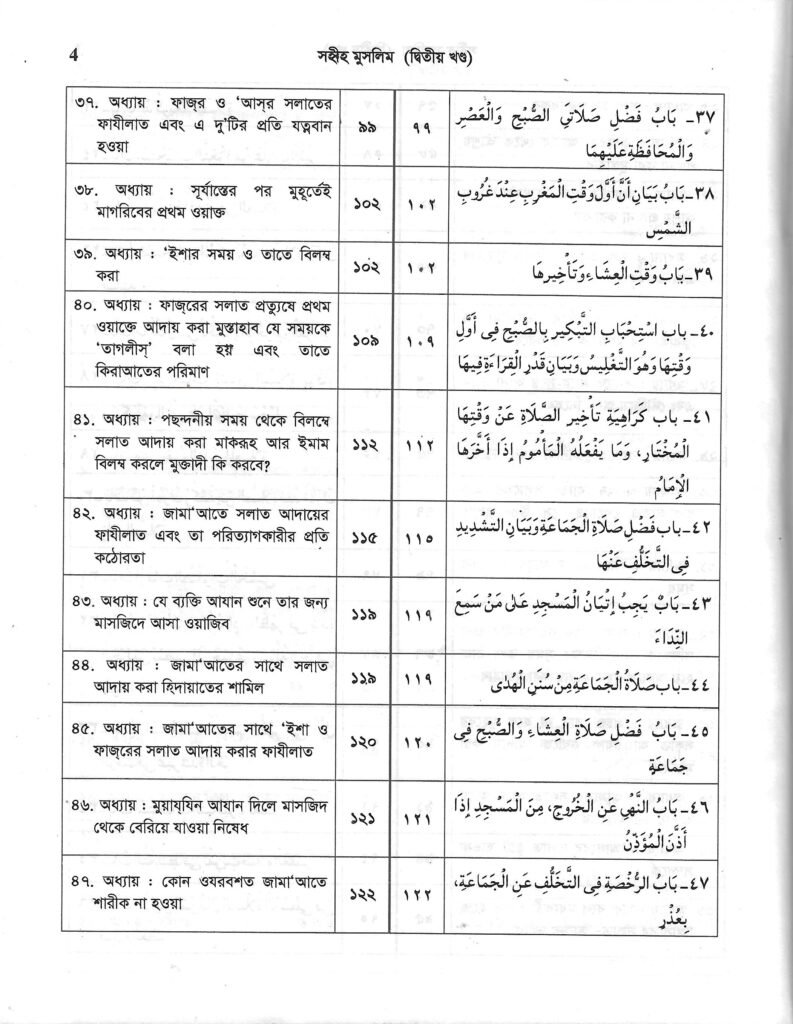 4
সহীহ মুসলিম (দ্বিতীয় খণ্ড)
৩৭. অধ্যায় : ফাজ্‌র ও ‘আস্‌র সলাতের
ফাযীলাত এবং এ দু’টির প্রতি যত্নবান
হওয়া
৯৯
٩٩
٣٧- بَابُ فَضْلِ صَلَاتَيِ الصُّبْحِ وَالْعَصْرِ
وَالْمُحَافَظَةِ عَلَيْهِمَا
৩৮. অধ্যায় : সূর্যাস্তের পর মুহূর্তেই
মাগরিবের প্রথম ওয়াক্ত
১০২
١٠٢
٣٨- بَابُ بَيَانِ أَنَّ أَوَّلَ وَقْتِ الْمَغْرِبِ عِنْدَ غُرُوبِ
الشَّمْسِ
৩৯. অধ্যায় : ‘ইশার সময় ও তাতে বিলম্ব
করা
১০২
١٠٢
٣٩- بَابُ وَقْتِ الْعِشَاءِ وَتَأْخِيرِهَا
৪০. অধ্যায় : ফাজ্‌রের সলাত প্রত্যুষে প্রথম
ওয়াক্তে আদায় করা মুস্তাহাব যে সময়কে
‘তাগলীস্‌’ বলা হয় এবং তাতে
কিরাআতের পরিমাণ
১০৯
١٠٩
٤٠- باب اسْتِحْبَابِ التَّبْكِيرِ بِالصُّبْحِ فِي أَوَّلِ
وَقْتِهَا وَهُوَ التَّغْلِيسُ وَبَيَانِ قَدْرِ الْقِرَاءَةِ فِيهَا
৪১. অধ্যায় : পছন্দনীয় সময় থেকে বিলম্বে
সলাত আদায় করা মাকরূহ আর ইমাম
বিলম্ব করলে মুক্তাদী কি করবে?
১১২
١١٢
٤١- باب كَرَاهِيَةِ تَأْخِيرِ الصَّلَاةِ عَنْ وَقْتِهَا
الْمُخْتَارِ، وَمَا يَفْعَلُهُ الْمَأْمُومُ إِذَا أَخَّرَهَا
الْإِمَامُ
৪২. অধ্যায় : জামা‘আতে সলাত আদায়ের
ফাযীলাত এবং তা পরিত্যাগকারীর প্রতি
কঠোরতা
১১৫
١١٥
٤٢- باب فَضْلِ صَلَاةِ الْجَمَاعَةِ وَبَيَانِ التَّشْدِيدِ
فِي التَّخَلُّفِ عَنْهَا
৪৩. অধ্যায় : যে ব্যক্তি আযান শুনে তার জন্য
মাসজিদে আসা ওয়াজিব
১১৯
١١٩
٤٣- بَابٌ يَجِبُ إِتْيَانُ الْمَسْجِدِ عَلَى مَنْ سَمِعَ
النِّدَاءَ
৪৪. অধ্যায় : জামা‘আতের সাথে সলাত
আদায় করা হিদায়াতের শামিল
১১৯
١١٩
٤٤- باب صَلَاةُ الْجَمَاعَةِ مِنْ سُنَنِ الْهُدٰى
৪৫. অধ্যায় : জামা‘আতের সাথে ‘ইশা ও
ফাজ্‌রের সলাত আদায় করার ফাযীলাত
১২০
١٢٠
٤٥- بَابُ فَضْلِ صَلَاةِ الْعِشَاءِ وَالصُّبْحِ فِي
جَمَاعَةٍ
৪৬. অধ্যায় : মুয়ায্‌যিন আযান দিলে মাসজিদ
থেকে বেরিয়ে যাওয়া নিষেধ
১২১
١٢١
٤٦- بَابُ النَّهْيِ عَنِ الْخُرُوجِ، مِنَ الْمَسْجِدِ إِذَا
أَذَّنَ الْمُؤَذِّنُ
৪৭. অধ্যায় : কোন ওযরবশত জামা‘আতে
শারীক না হওয়া
১২২
١٢٢
٤٧- بَابُ الرُّخْصَةِ فِي التَّخَلُّفِ عَنِ الْجَمَاعَةِ،
بِعُذْرٍ